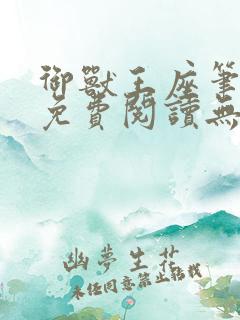 御獸王座筆
免費閱讀無
幽夢生花
未經同意禁止轉載